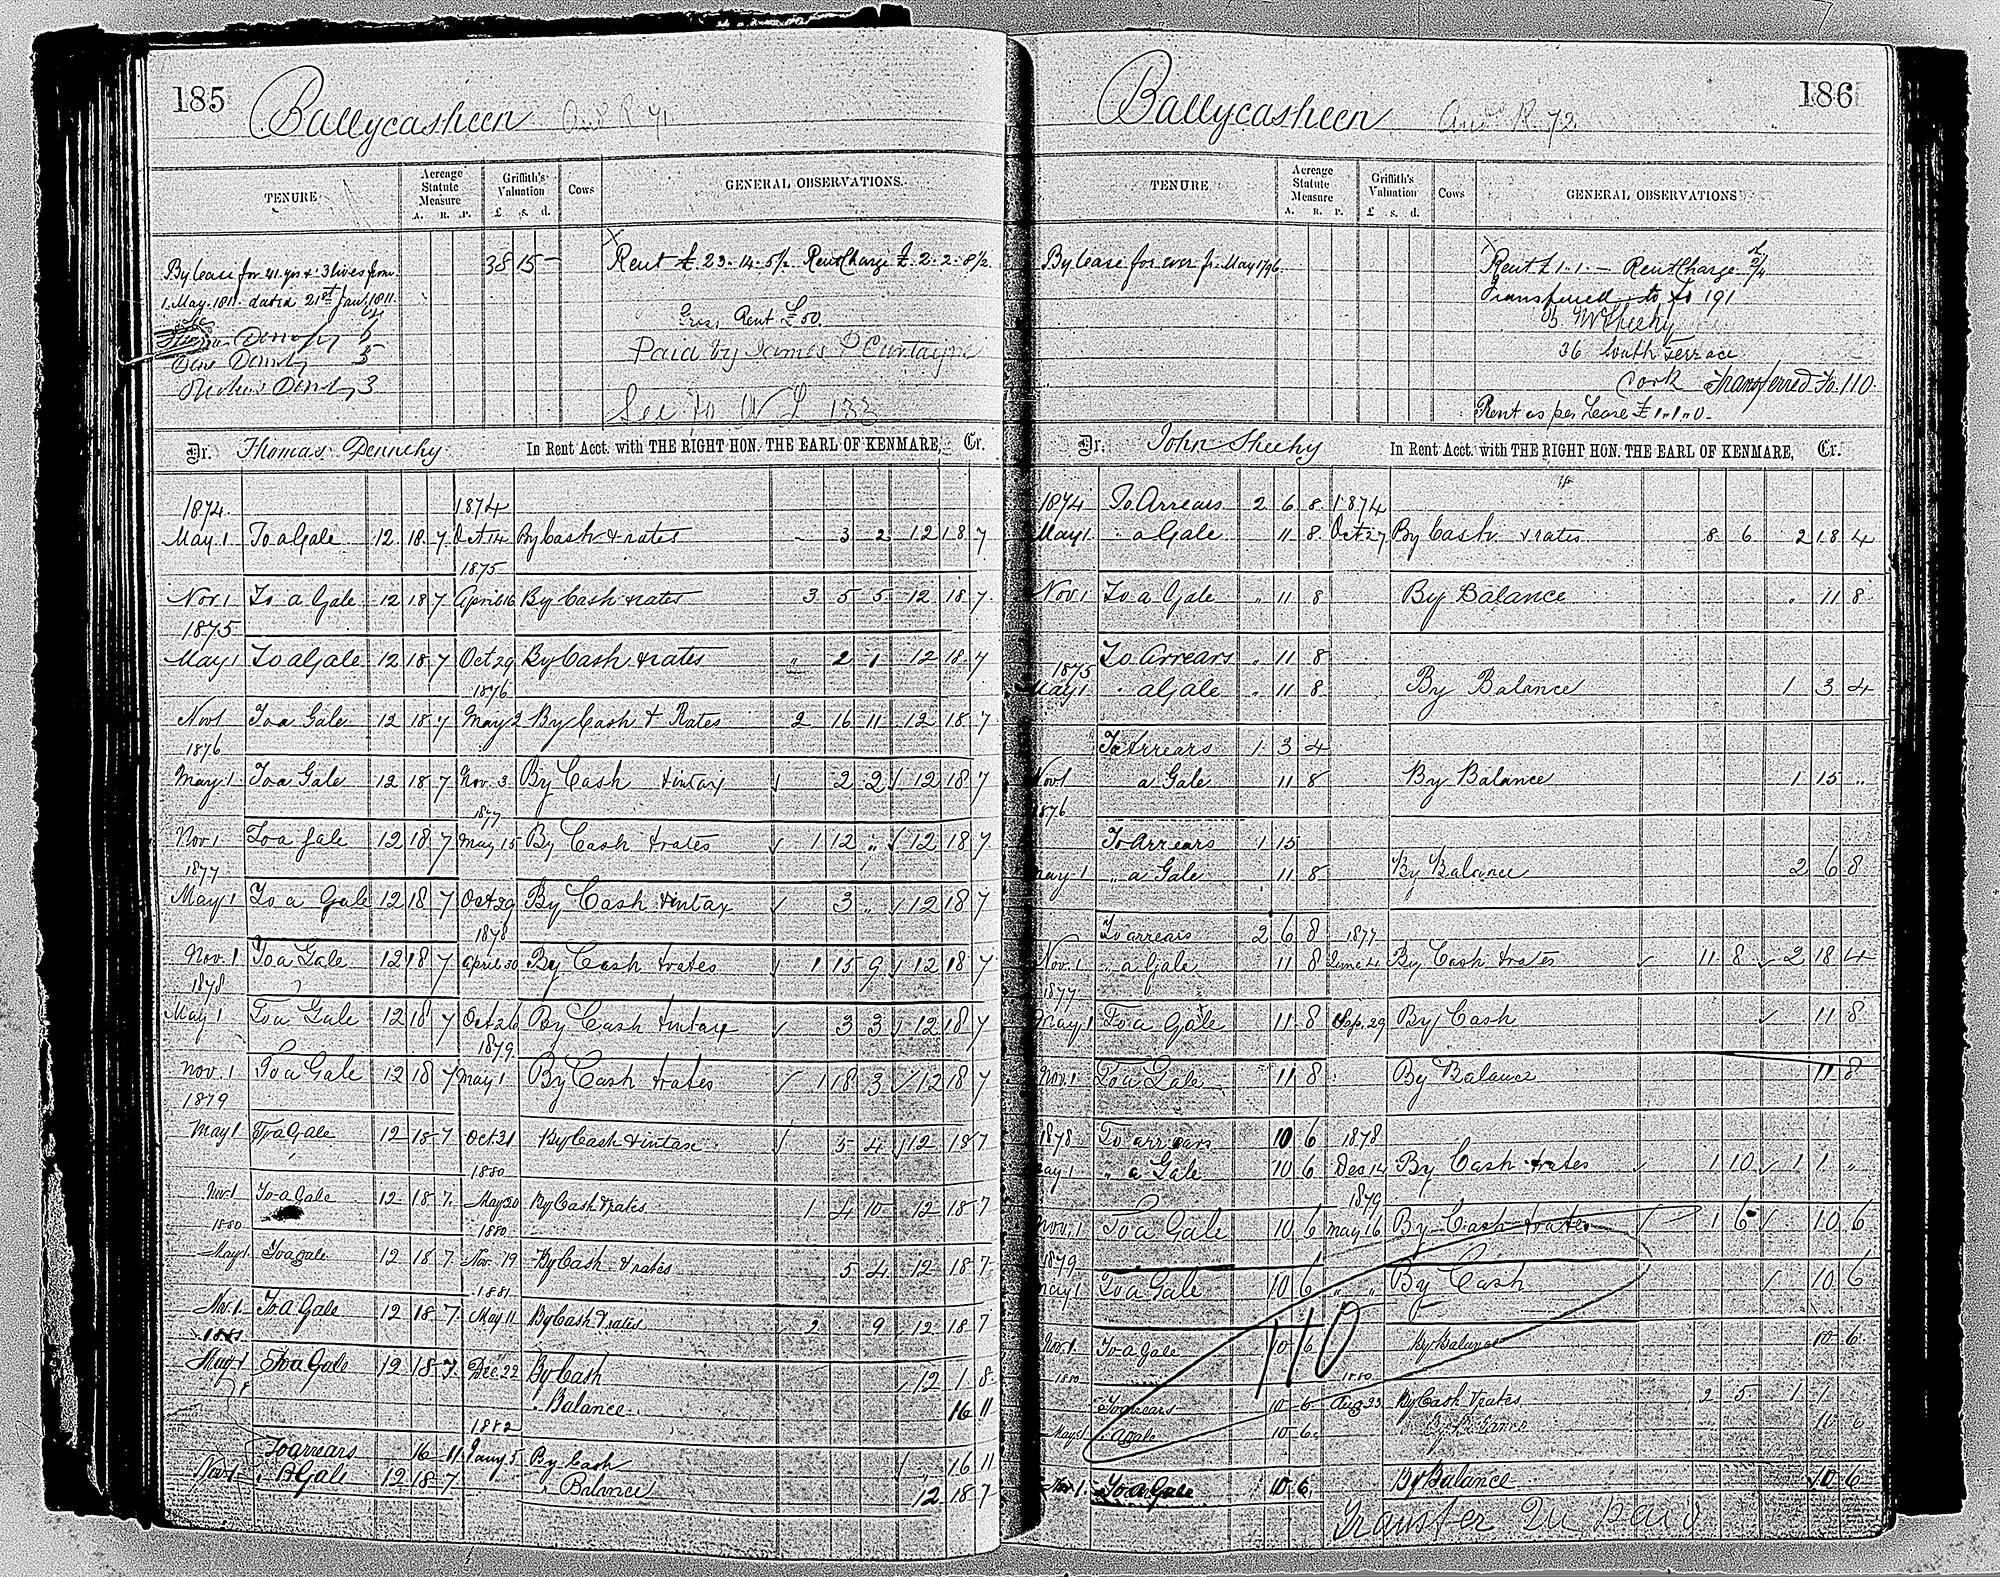 185
Ballycasheen
R 71
TENURE
Acreage Statute Measure
A. R. P.
Griffith's Valuation
£ s. d.
Cows
GENERAL OBSERVATIONS.
By Lease for 41 yrs & 3 lives from
1. May. 1811. dated 21st Jany. 1811.
38 15 –
Rent £. 23. 14. 5½ RentCharge £. 2. 2. 8½
Rent £50.
Paid by James P Curtayne
3
See fo
Dr. Thomas Dennehy In Rent Acct. with THE RIGHT HON. THE EARL OF KENMARE, Cr.
1874. 1874
May. 1 To a Gale 12. 18. 7. Oct 14 By Cash & rates – 3 2 12 18 7
1875
Nov. 1 To a Gale 12 18 7 April 16 By Cash & rates 3 5 5 12 18 7
1875
May 1 To a Gale 12 18 7 Oct 29 By Cash & rates " 2 1 12 18 7
1876
Nov 1 To a Gale 12 18 7 May 2 By Cash & Rates 2 16 11 12 18 7
1876
May 1 To a Gale 12 18 7 Nov. 3 By Cash & intax 2 2 12 18 7
1877
Nov 1 To a gale 12 18 7 May 15 By Cash & rates 1 12 " 12 18 7
1877
May 1 To a Gale 12 18 7 Oct 29 By Cash & intax 3 " 12 18 7
1878
Nov. 1 To a Gale 12 18 7 April 30 By Cash & rates 1 15 9 12 18 7
1878
May 1 To a Gale 12 18 7 Oct 26 By Cash & intax 3 3 12 18 7
1879
Nov. 1 To a Gale 12 18 7 May 1 By Cash & rates 1 18 3 12 18 7
1879
May 1 To a Gale 12 18 7 Oct. 21 By Cash & intax 5 4 12 18 7
1880
Nov 1 To a Gale 12 18 7. May 20 By Cash & rates 1 4 10 12 18 7
1880 1880
May 1. To a gale 12 18 7. Nov. 19 By Cash & rates 5 4 12 18 7
1881
Nov. 1. To a Gale 12 18 7. May 11 By Cash & rates 2 9 12 18 7
1881
May 1 To a Gale 12 18 7. Dec. 22 By Cash 12 1 8
" Balance 16 11
1882
To arrears 16 11 Jany 5 By Cash " 16 11
Nov 1. " A Gale 12 18 7 " Balance 12 18 7
186
Ballycasheen
R 72
TENURE
Acreage Statute Measure
A. R. P.
Griffith's Valuation
£ s. d.
Cows
GENERAL OBSERVATIONS
By Lease for ever fr. May 1796
Rent £ 1. 1. – RentCharge
Transferred to fo 191
McSheehy
36 South Terrace
Cork Transferred Fo. 110.
Rent as per Lease £ 1. 1. 0.
Dr. John Sheehy In Rent Acct. with THE RIGHT HON. THE EARL OF KENMARE, Cr.
1874 To Arrears 2 6 8 1874
May 1. " a Gale 11 8. Oct 27 By Cash & rates 8 6 2 18 4
Nov 1 To a Gale " 11 8 By Balance " 11 8
To Arrears " 11 8
1875
May 1 " a Gale " 11 8 By Balance 1 3 4
To Arrears 1 3 4
Nov 1 a Gale 11 8 By Balance 1 15 "
1876
To Arrears 1 15
May 1 " a Gale 11 8 By Balance 2 6 8
To arrears 2 6 8 1877
Nov. 1 " a Gale 11 8 June 4 By Cash & rates 11 8 2 18 4
1877
May 1 To a Gale 11 8 Sep. 29 By Cash 11 8
Nov. 1 To a Gale 11 8 By Balance 11 8
1878 To arrears 10 6 1878
May 1 " a Gale 10 6 Dec 14 By Cash & rates 1 10 1 1 "
1879
Nov. 1 To a Gale 10 6 May 16 By Cash & rates 1 6 10 6
1879
May 1 To a Gale 10 6 " " By Cash 10 6
110
Nov 1. To a Gale 10 6 By Balance 10 6
1880 1880
To arrears 10 6 Aug 23 By Cash & rates 2 5 1 1
May 1 " a gale 10 6. By Balance 10 6
Nov 1. To a Gale 10 6 By Balance 10 6
Transfer